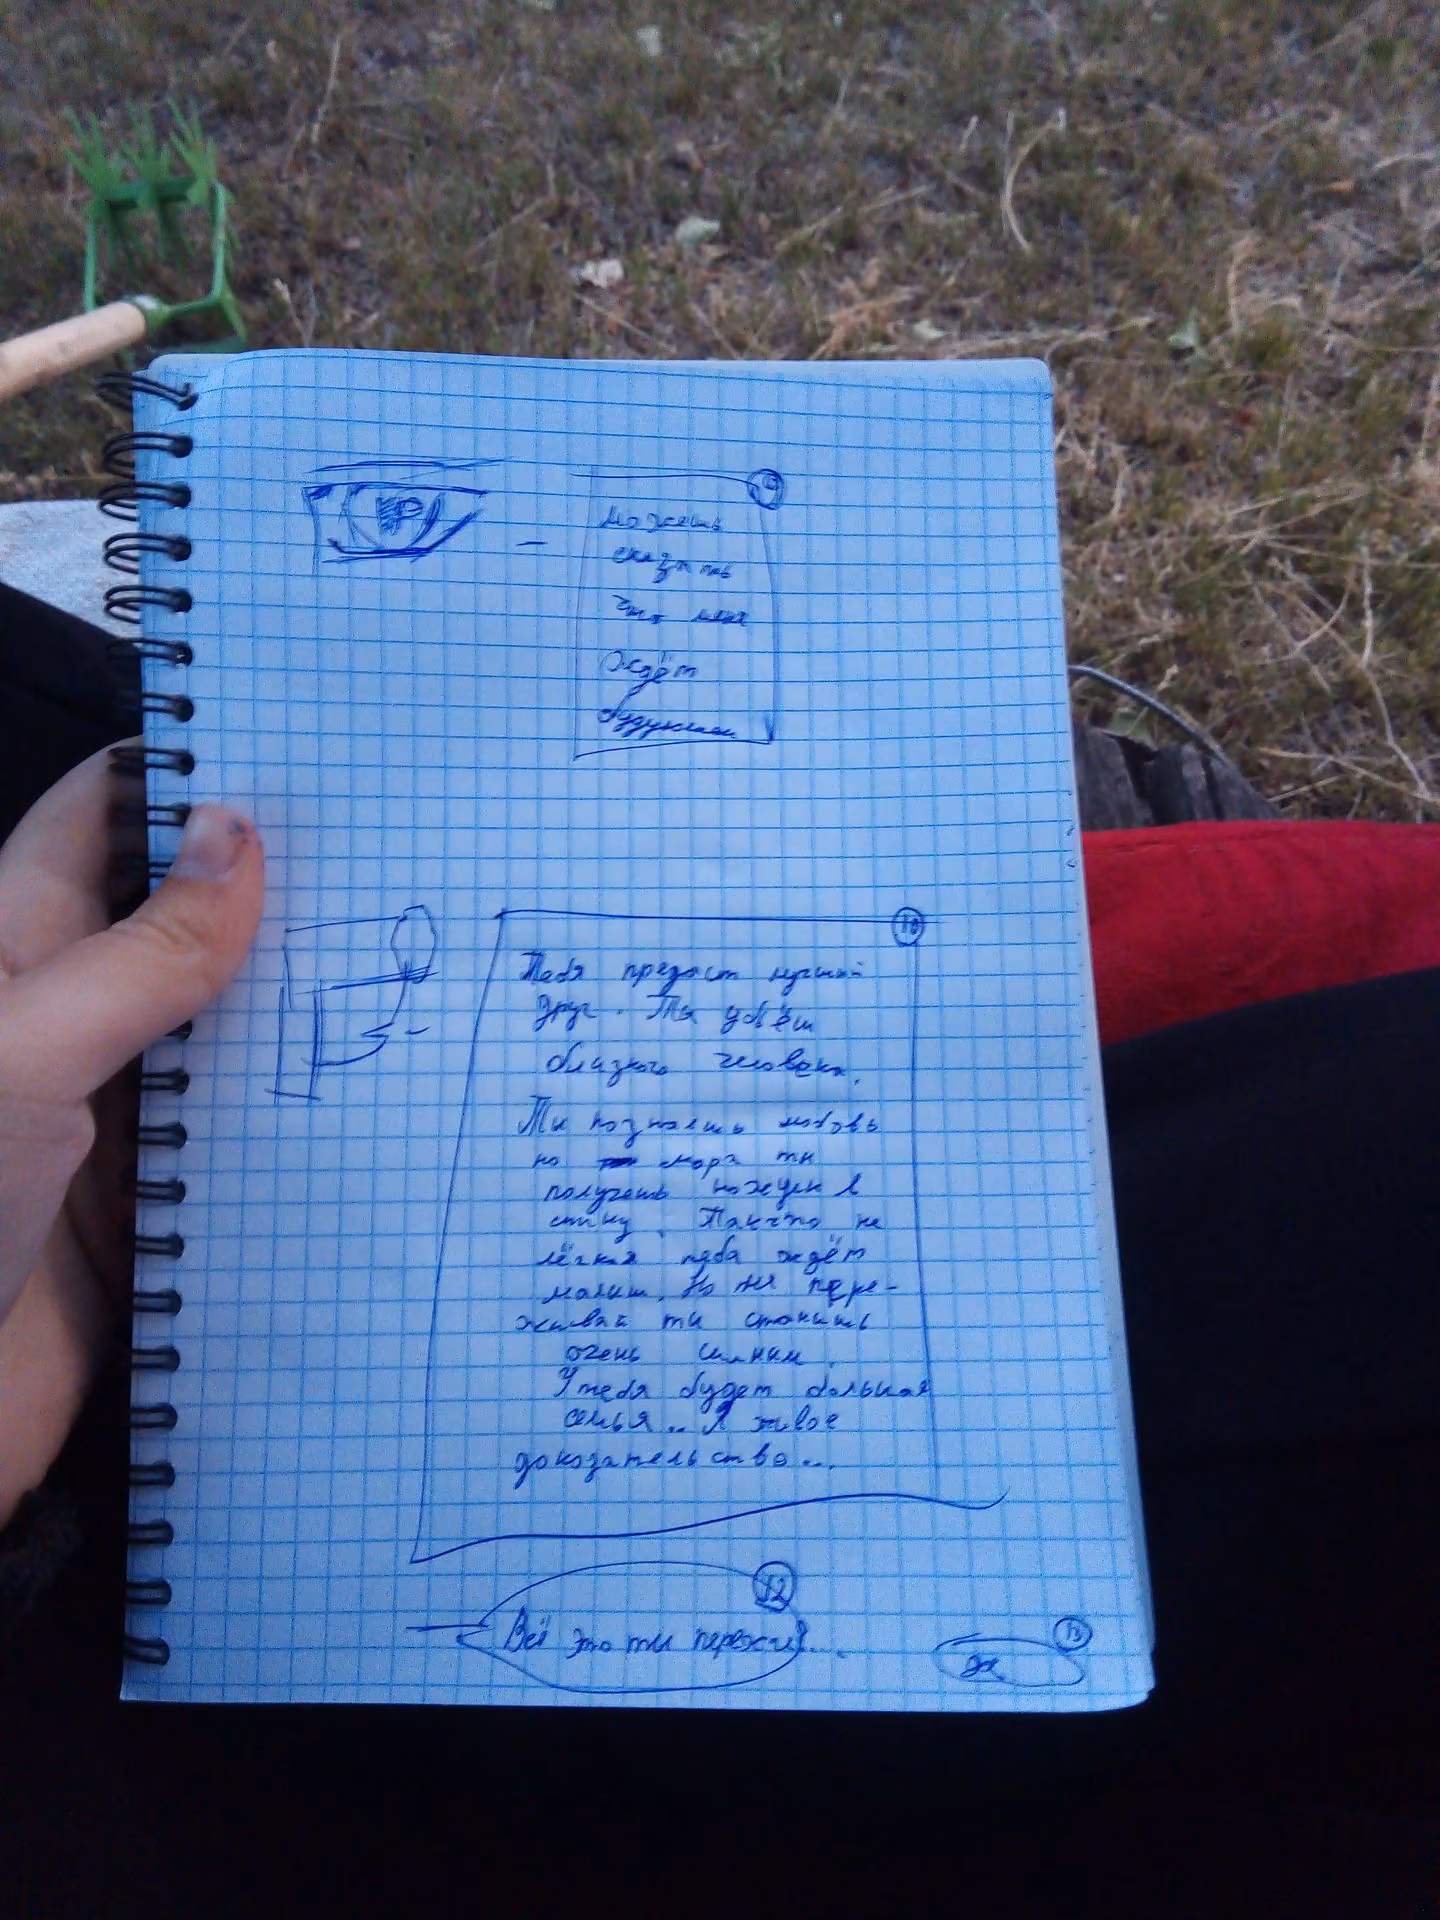 9
Можешь
сказать
что меня
ждёт
будующем
10
Тебя предаст лучший
друг. Ты убьёш
близкого человека.
Ты познаешь любовь
но ты
получешь ножуын в
спину. Такчто не
лёгкая тебя ждёт
малыш. Но не пере-
живай ты станишь
очень силным.
У тебя будет большая
семья.. Я живое
доказательство...
12
Всё это ты пережил...
13